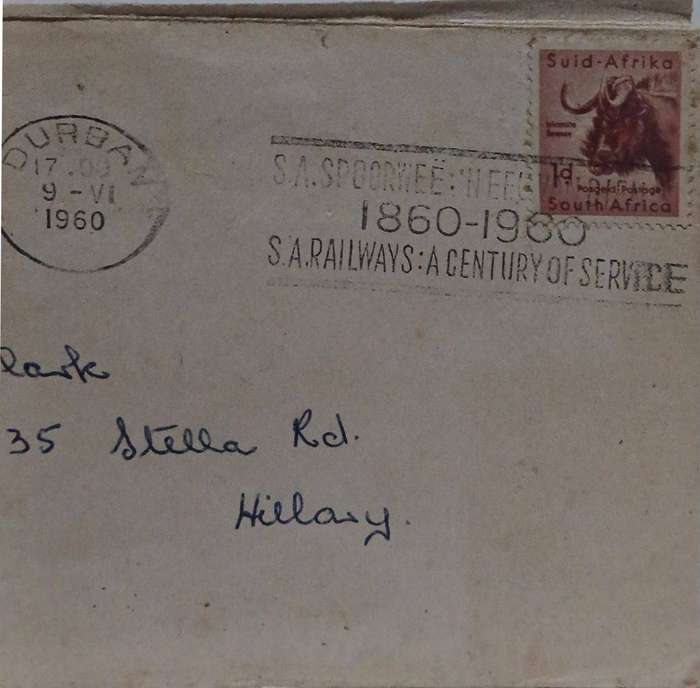 DURBAN
17.00
9-VI
1960
S.A.SPOORWEË:'N EEU
1860-1960
S.A.RAILWAYS:A CENTURY OF SERVICE
Suid-Afrika
1d
Posgeld Postage
South Africa
lark
35 Stella Rd.
Hillary.